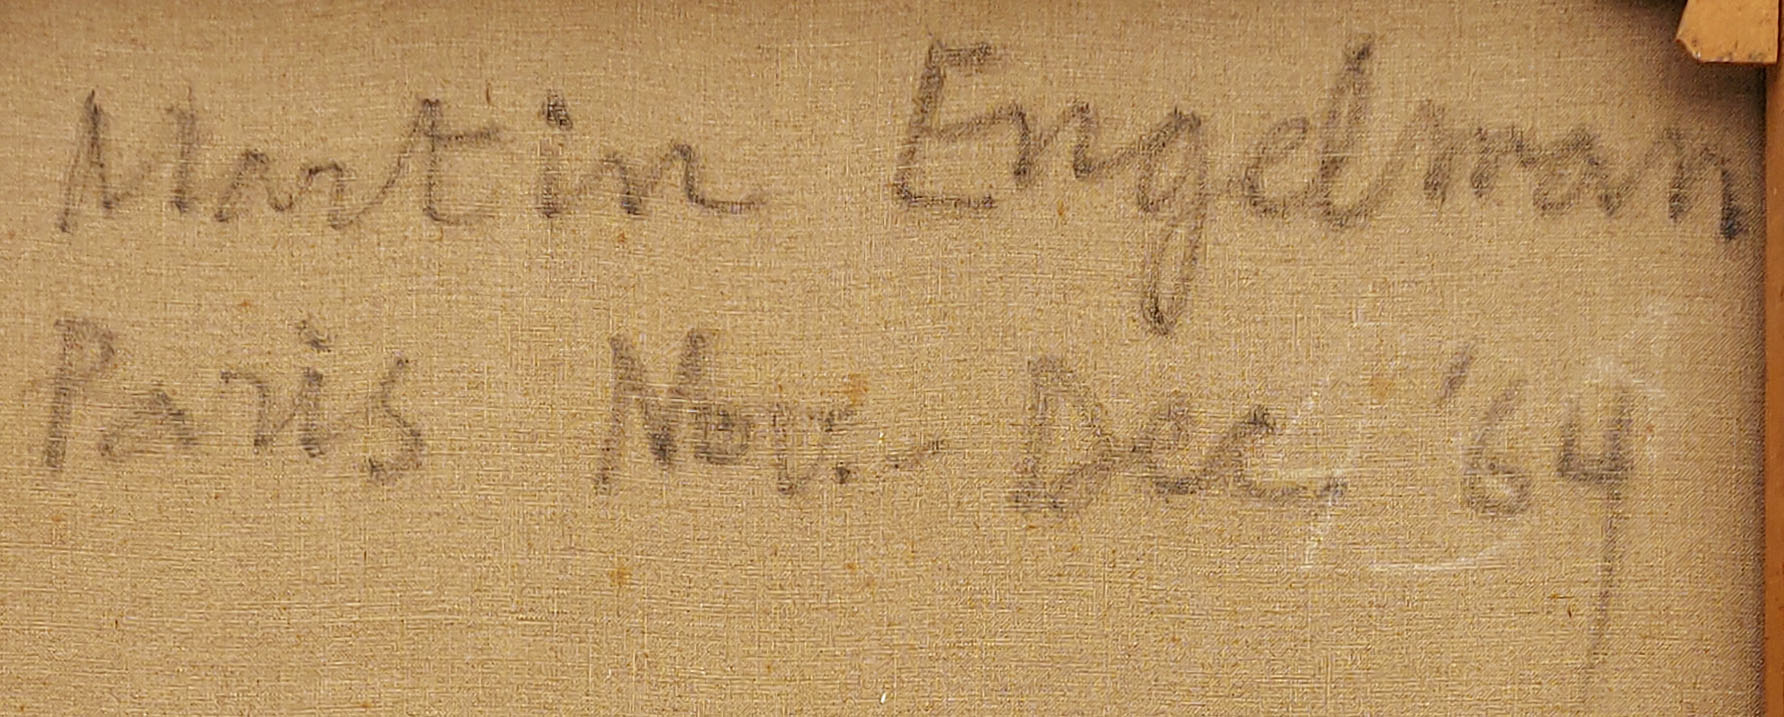 Martin Engelman
Paris Nov.- Dec '64